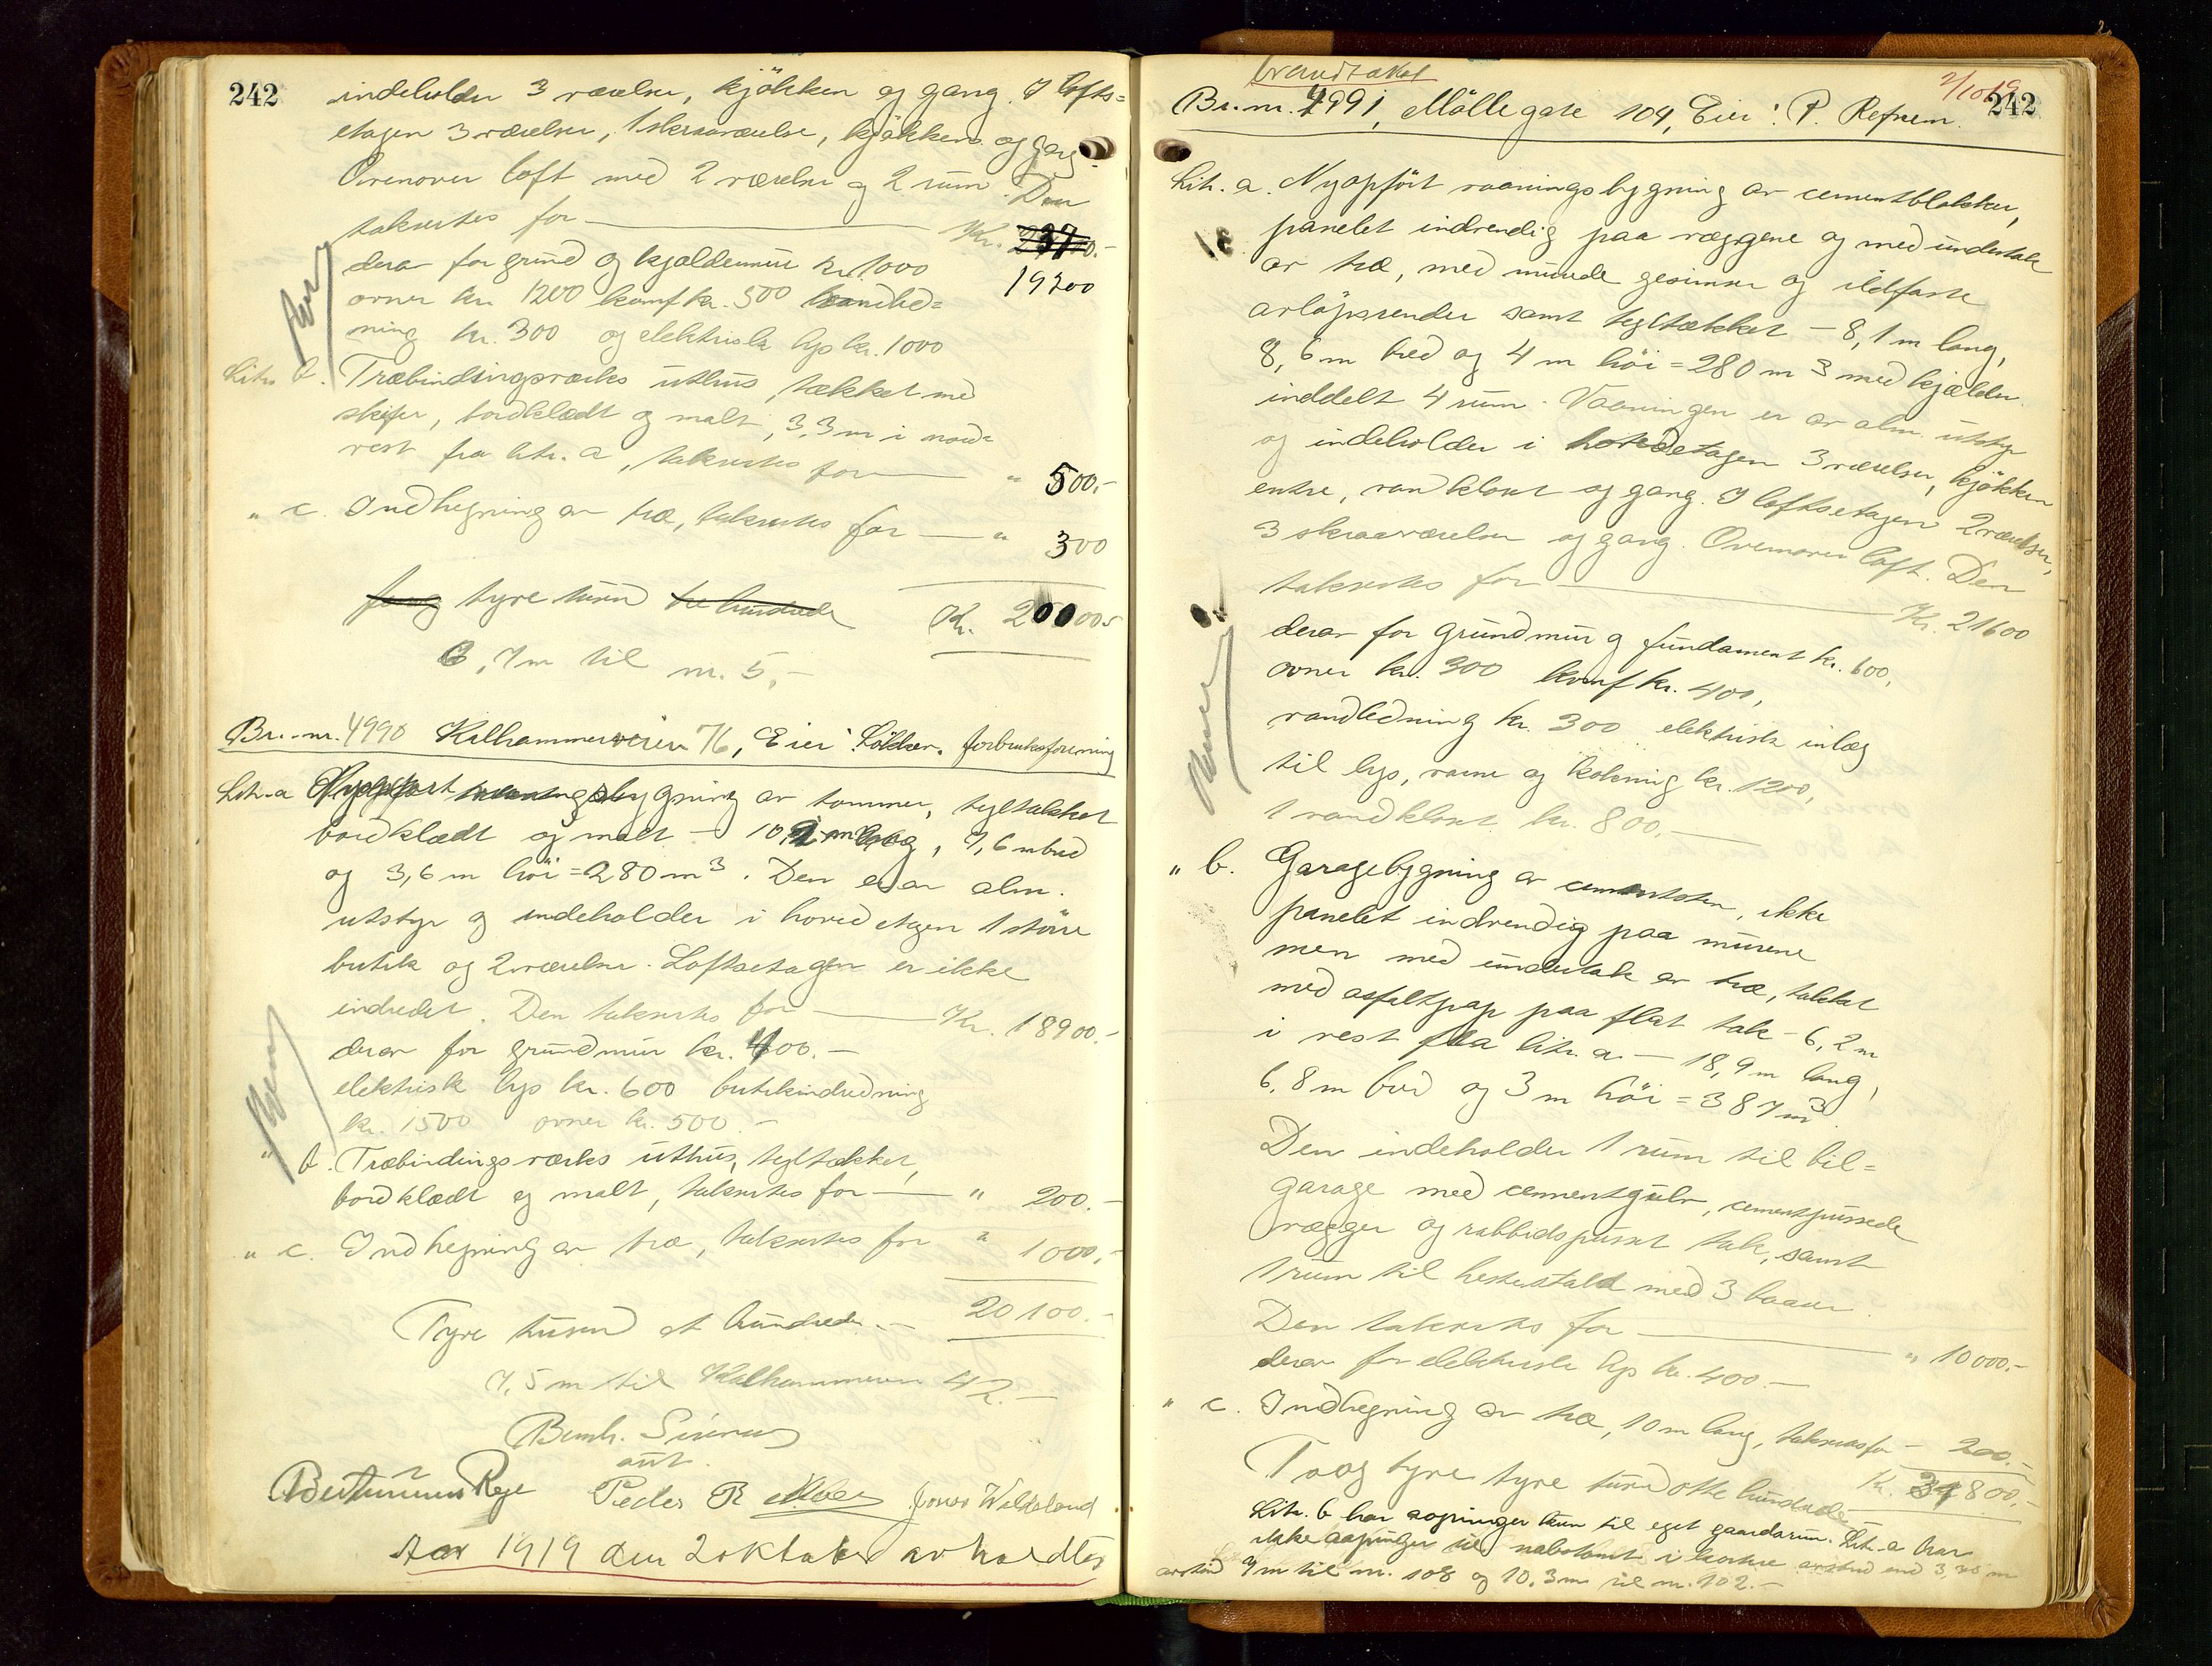 242
indeholder 3 værelser, kjökken og gang. I lofts=
etagen 3 værelser, 1 skraaværelse, kjökken og gang.
Ovenover loft med 2 værelser og 2 rum. Den
taksertes for — Kr.
19200
derav for grund og kjældermur kr. 1000
ovner kr. 1200 komf kr. 500 vandled=
ning kr. 300 og elektrisk lys kr. 1000
Litr. b. Træbindingsverks uthus, tækket med
skifer, bordklædt og malt, 3,3 m i nord=
vest fra litr. a, taksertes for — " 500.-
" c. Indhegning av træ, taksertes for — " 300
tyve tusen tre hundrede Kr. 20000.-
6,7 m til nr. 5.-
Br.-nr. 4990 Kalhammerveien 76, Eier: Stokker. forbruksforening
Litr. a Nyopfört vaaningsbygning av tømmer, tegltækket
bordklædt og malt - 10,2 m lang, 7,6 m bred
og 3,6 m höi = 280 m³. Den er av alm.
utstyr og indeholder i hovedetagen 1 större
butik og 2 værelser. Loftsetagen er ikke
indredet. Den taksertes for — Kr. 18900.-
derav for grundmur kr. 400.-
elektrisk lys kr. 600 butikindredning
kr. 1500 ovner kr. 500.-
" b. Træbindingsverks uthus, tegltækket,
bordklædt og malt, taksertes for — " 200.-
" c. Indhegning av træ, taksertes for " 1000.-
Tyve tusen et hundrede.- 20100.-
7,5 m til Kalhammervn 42.-
Bernh.
aut.
Peder R Jonas
Aar 1919 den 2 oktober avholdtes
brandtakst
2/10 19
242
Br.-nr. 4991, Möllegate 104, Eier: P. Refnem.
Litr. a. Nyopfört vaaningsbygning av cementblokker,
panelet indvendig paa væggene og med undertak
av træ, med murede gesimser og ildfaste
avløpsrender samt tegltækket - 8,1 m lang,
8,6 m bred og 4 m höi = 280 m³ med kjælder
inddelt 4 rum. Vaaningen er av alm. utstyr
og indeholder i hovedetagen 3 værelser, kjökken
entre, vandkloset og gang. I loftsetagen 2 værelser,
3 skraaværelser og gang. Ovenover loft. Den
taksertes for — Kr. 21600
derav for grundmur og fundament kr. 600,
ovner kr. 300 komf kr. 400,
vandledning kr. 300 elektrisk inlæg
til lys, varme og kokning kr. 1200,
1 vandkloset kr. 800.-
" b. Garagebygning av cementsten, ikke
panelet indvendig paa murene
men med undertak av træ, tækket
med asfaltpap paa flat tak - 6,2 m
i vest fra litr. a - 18,9 m lang,
6,8 m bred og 3 m höi = 387 m³.
Den indeholder 1 rum til bil=
garage med cementgulv, cementpussede
vægger og rabbidspusset tak, samt
1 rum til hestestald med 3 baaser.
Den taksertes for — " 10000.-
derav for elektrisk lys kr. 400.-
" c. Indhegning av træ, 10 m lang, taksertes for - 200.-
To og tyve tusen otte hundrede Kr. 31800.-
Litr. b har aapninger kun til eget gaardsrum. Litr. a har
ikke aapninger til nabotomt i kortere avstand end 3,75 m
avstand 4 m til nr. 108 og 10,3 m til nr. 102.-